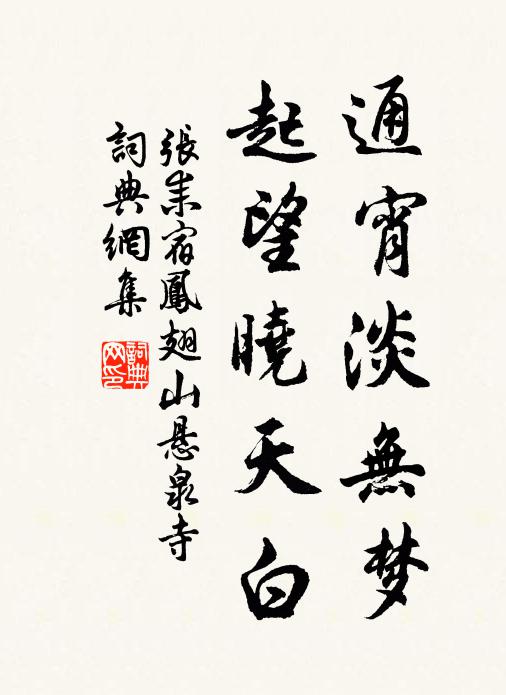 通宵淡無梦
起望曉天白
張耒宿鳳翅山悬泉寺
詞典網集
詞典网印